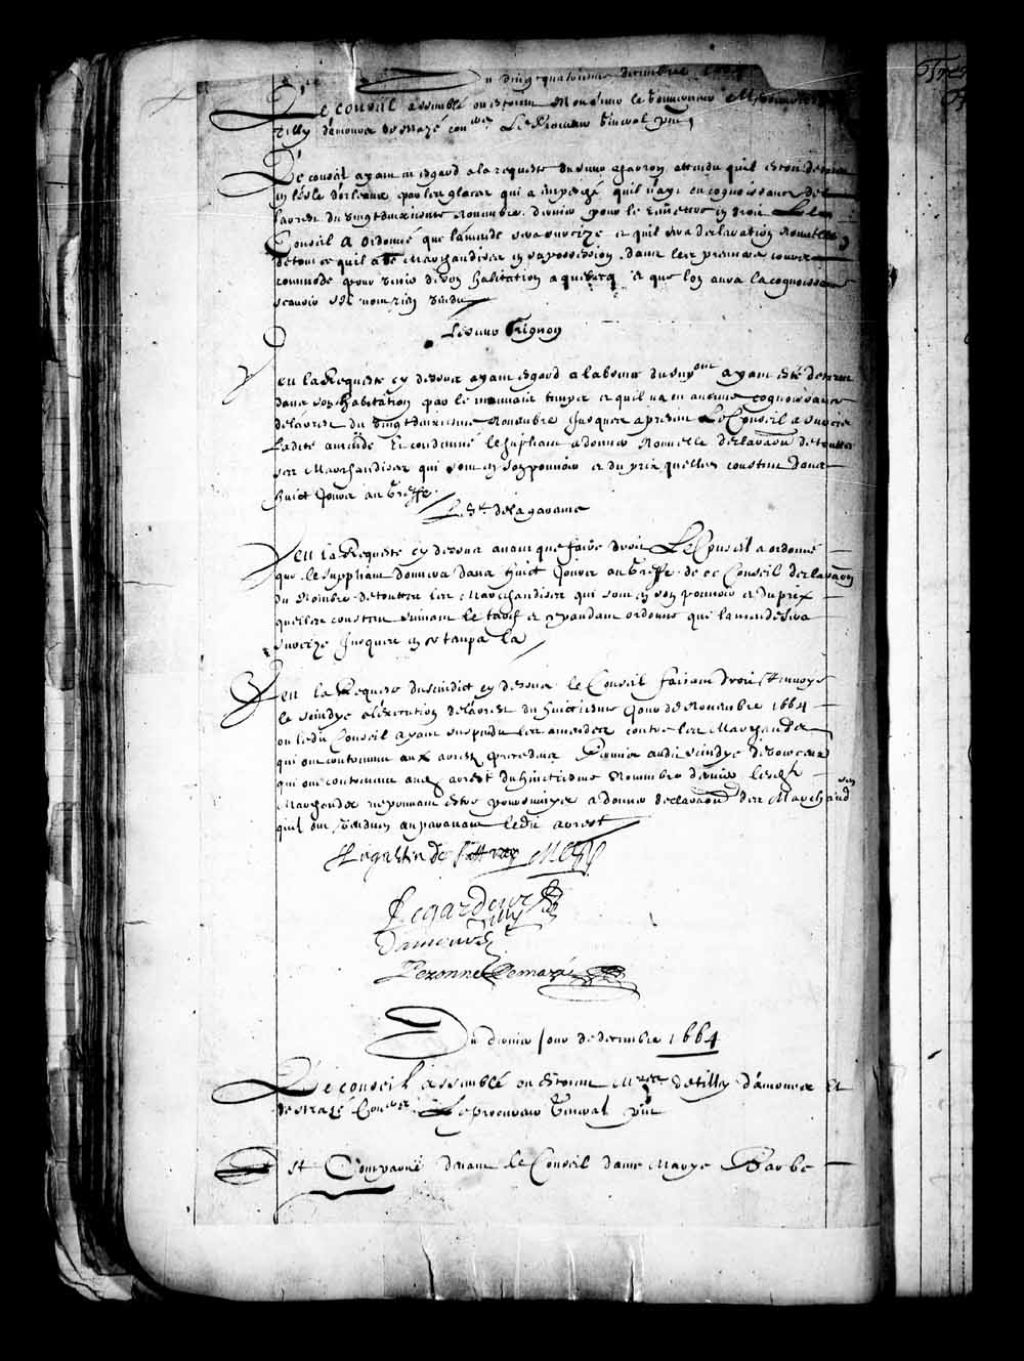 Du vingt quatriesme decembre 1664
Le conseil assemblé ou estoient Monsieur le Gouverneur Mrs
Tilly damours demazé coners Le Procureur general pnt
Le conseil ayant eu esgard a la requeste du sieur charron attendu quil estoit
en lisle dorleans par les glaces quil n'ayt eu cognoissance de
larrest du vingt deuxiesme Novembre dernier pour le
Conseil a ordonné que lamende sera surcize et quil sera declaration
de tout ce quil a de Marchandises en sa possession dans les premiers jours
commode pour venir de son habitation a quebecq et que lon aura la cognoissance
scavoir sil nen rien vendu
Le sieur Grignon
Veu la Requeste cy dessus ayant esgard a labsence du supt ayant esté
dans son habitation par le mauvais temps et quil na eu aucune cognoissance
de larrest du vingt deuxiesme Novembre jusques a present Le Conseil a surcis
Ladite amende Et condemné le supliant a donner Nouvelle declaraon de touttes
ses Marchandises qui sont en son pouvoir et du prix quelles coustent dans
huict jours au Greffe
Le Sr de la garenne
Veu la Requeste cy dessus avant que faire droit Le Conseil a ordonné
que le suppliant donnera dans huict jours au Greffe de ce Conseil declaraon
du Nombre de touttes les Marchandises qui sont en son pouvoir et du prix
quelles coustent suivant le tarif et cependant ordonne que lamende sera
surcize jusques en ce temps la
Veu la Requeste du scindict cy dessus le Conseil faisant droit renvoye
le scindic a lexecution de larrest du huictiesme jour de Novembre 1664
ou ledit Conseil ayant suspendu les amendes contre les Marchands
qui ont contrevenu aux arrests precedens
qui ont contrevenu aux arrest du huictiesme Novembre dernier lesdits
Marchands ne pouvant estre poursuivys a donner declaraon des Marchandises
quil ont vendues auparavant ledit arrest
Mézy
Legardeur
Tilly
Damours
Peronne Demazé
Du dernier jour de decembre 1664
Le conseil assemblé ou estoient Mrs de tilly damours Et
demazé Coners Le procureur General pnt
Est Comparue devant le Conseil dame Marye Barbe